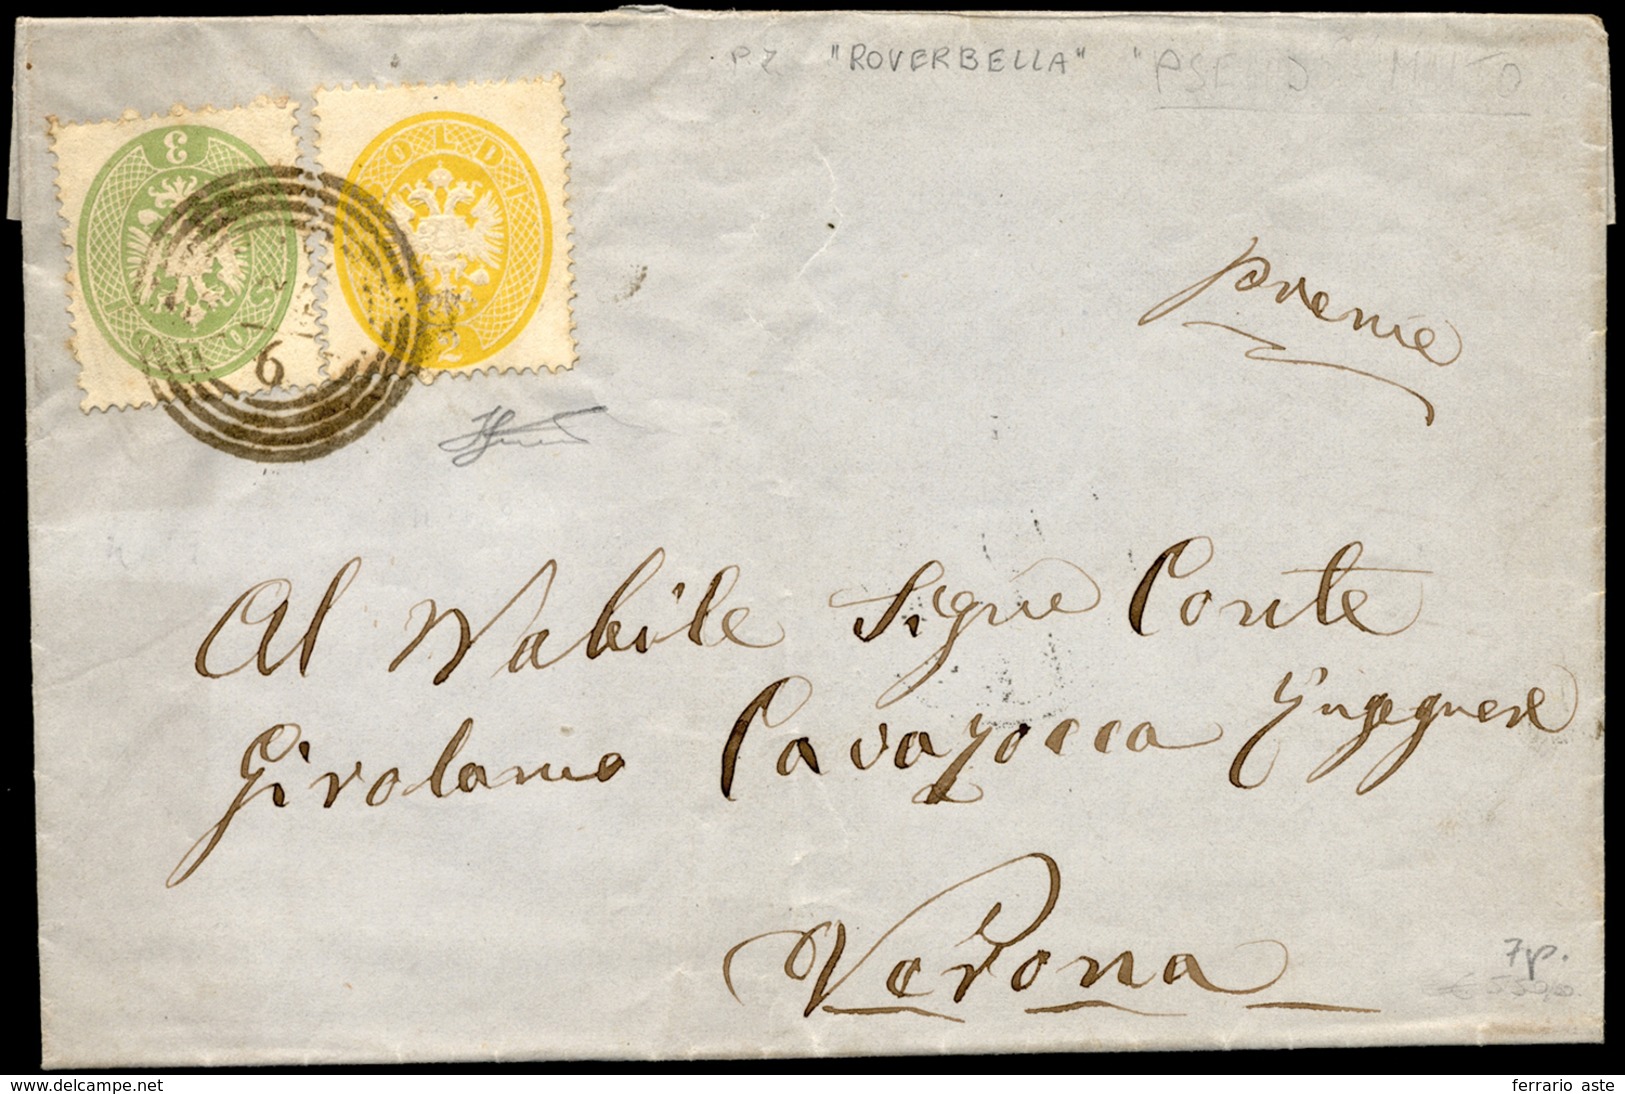 PZ "ROVERBELLA"
3 SOLDI
SOLDI 2
6
premie
Al Nobile Sigre Conte
Girolamo Cavazocca Ingegnere
Verona
7p.
delcampe.net
ferrario aste